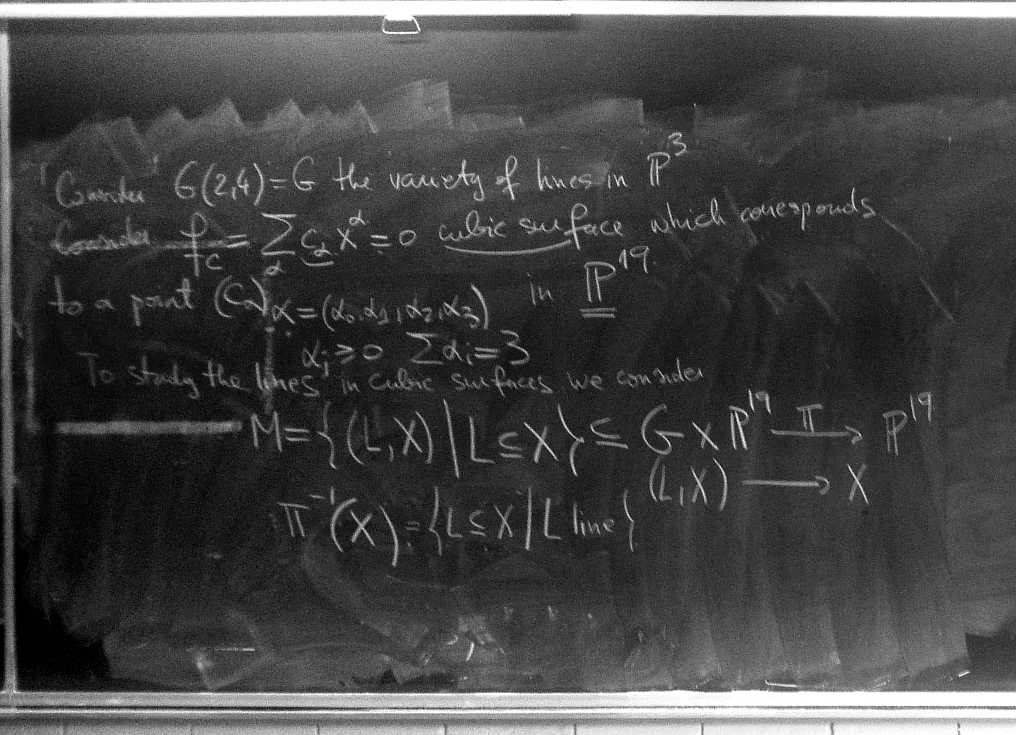 Consider G(2,4)=G the variety of lines in ℙ³
Consider f_c = Σ_α c_α x^α = 0 cubic surface which corresponds
to a point (c_α) α=(α₀,α₁,α₂,α₃) in ℙ¹⁹
αᵢ ≥ 0 Σαᵢ=3
To study the lines in cubic surfaces we consider
M={(L,X)|L⊆X}⊆ G×ℙ¹⁹ —π→ ℙ¹⁹
(L,X) ⟶ X
π⁻¹(X)={L⊆X|L line}